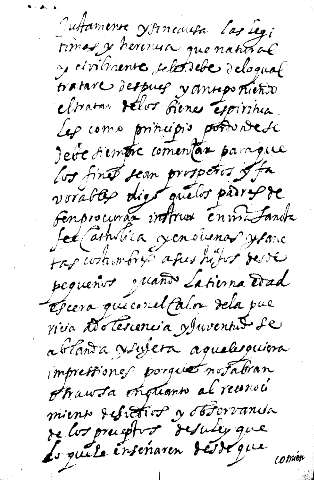 Justamente y sin causa las legi
timas y herencia que natural
y civilmente, se les debe delo qual
tratare despues y anteponiendo
el tratar de los bienes espiritua
les como principio por donde se
debe siempre comenzar para que
los fines sean prosperos y fa
vorables digo que los padres de
ben procurar instruir en nra sancta
fee Catholica y en buenas y sanc
tas costumbres a sus hijos desde
pequeños quando la tierna edad
es cera que con el Calor de la pue
ricia adolescencia y Juventud se
ablanda y sujeta a qualesquiera
impressiones porque no sabran
otra cosa en quanto al reconoci
miento de su Dios y observancia
de los preceptos de su ley que
lo que le enseñaren desde que
comien